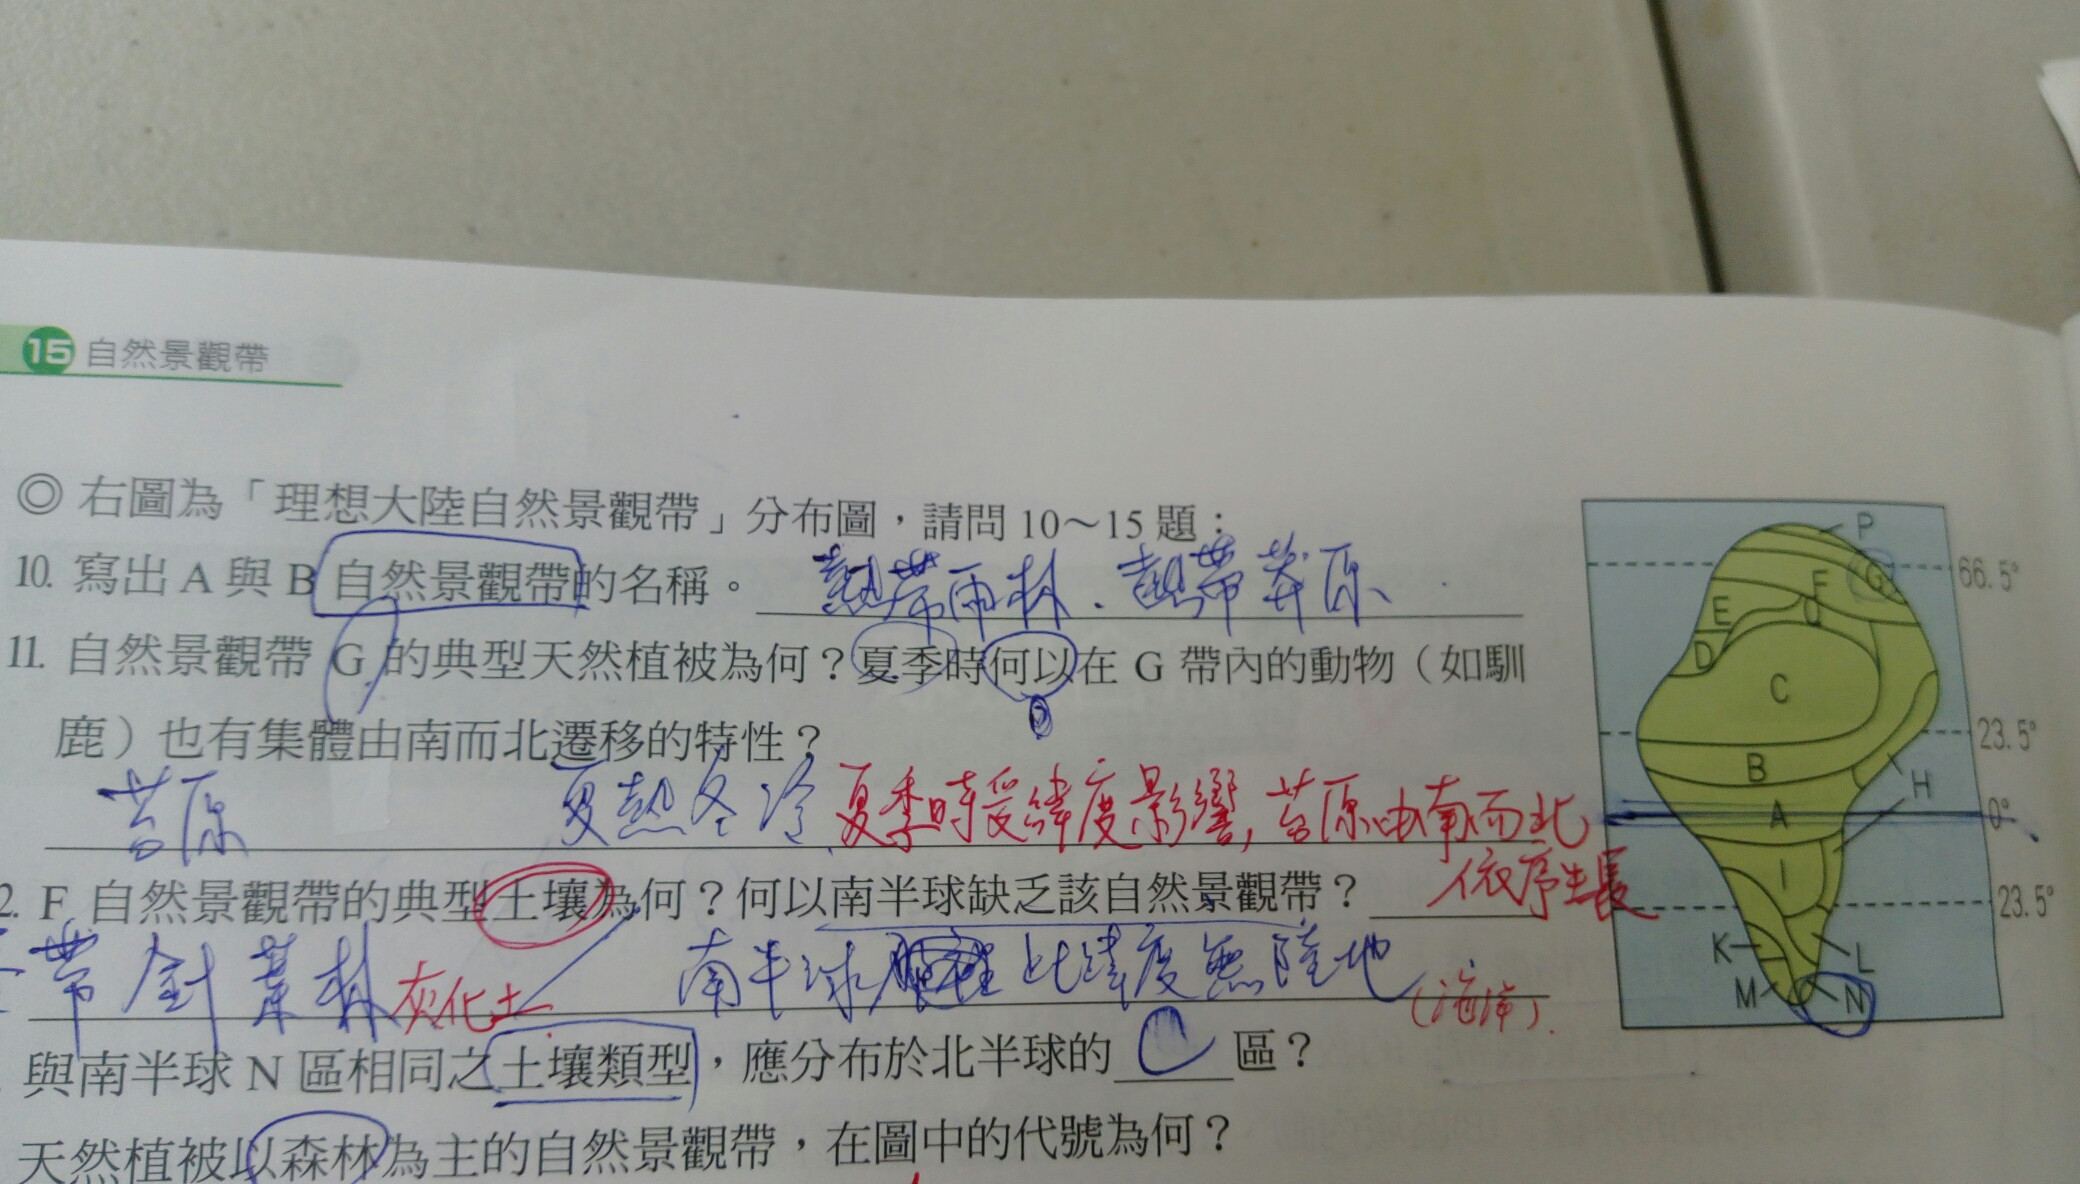 15 自然景觀帶
◎ 右圖為「理想大陸自然景觀帶」分布圖，請問 10～15 題：
10. 寫出 A 與 B 自然景觀帶的名稱。 熱帶雨林、熱帶莽原
11. 自然景觀帶 G 的典型天然植被為何？夏季時何以在 G 帶內的動物（如馴
鹿）也有集體由南而北遷移的特性？
苔原 夏熱冬冷 夏季時受緯度影響, 苔原由南而北
依序生長
2. F 自然景觀帶的典型土壤為何？何以南半球缺乏該自然景觀帶？
帶針葉林 灰化土 南半球 此緯度無陸地 (海洋).
與南半球 N 區相同之土壤類型，應分布於北半球的 C 區？
天然植被以森林為主的自然景觀帶，在圖中的代號為何？
P
66.5°
G
F
E
J
D
C
23.5°
B
H
A
0°
I
23.5°
K
L
M
N